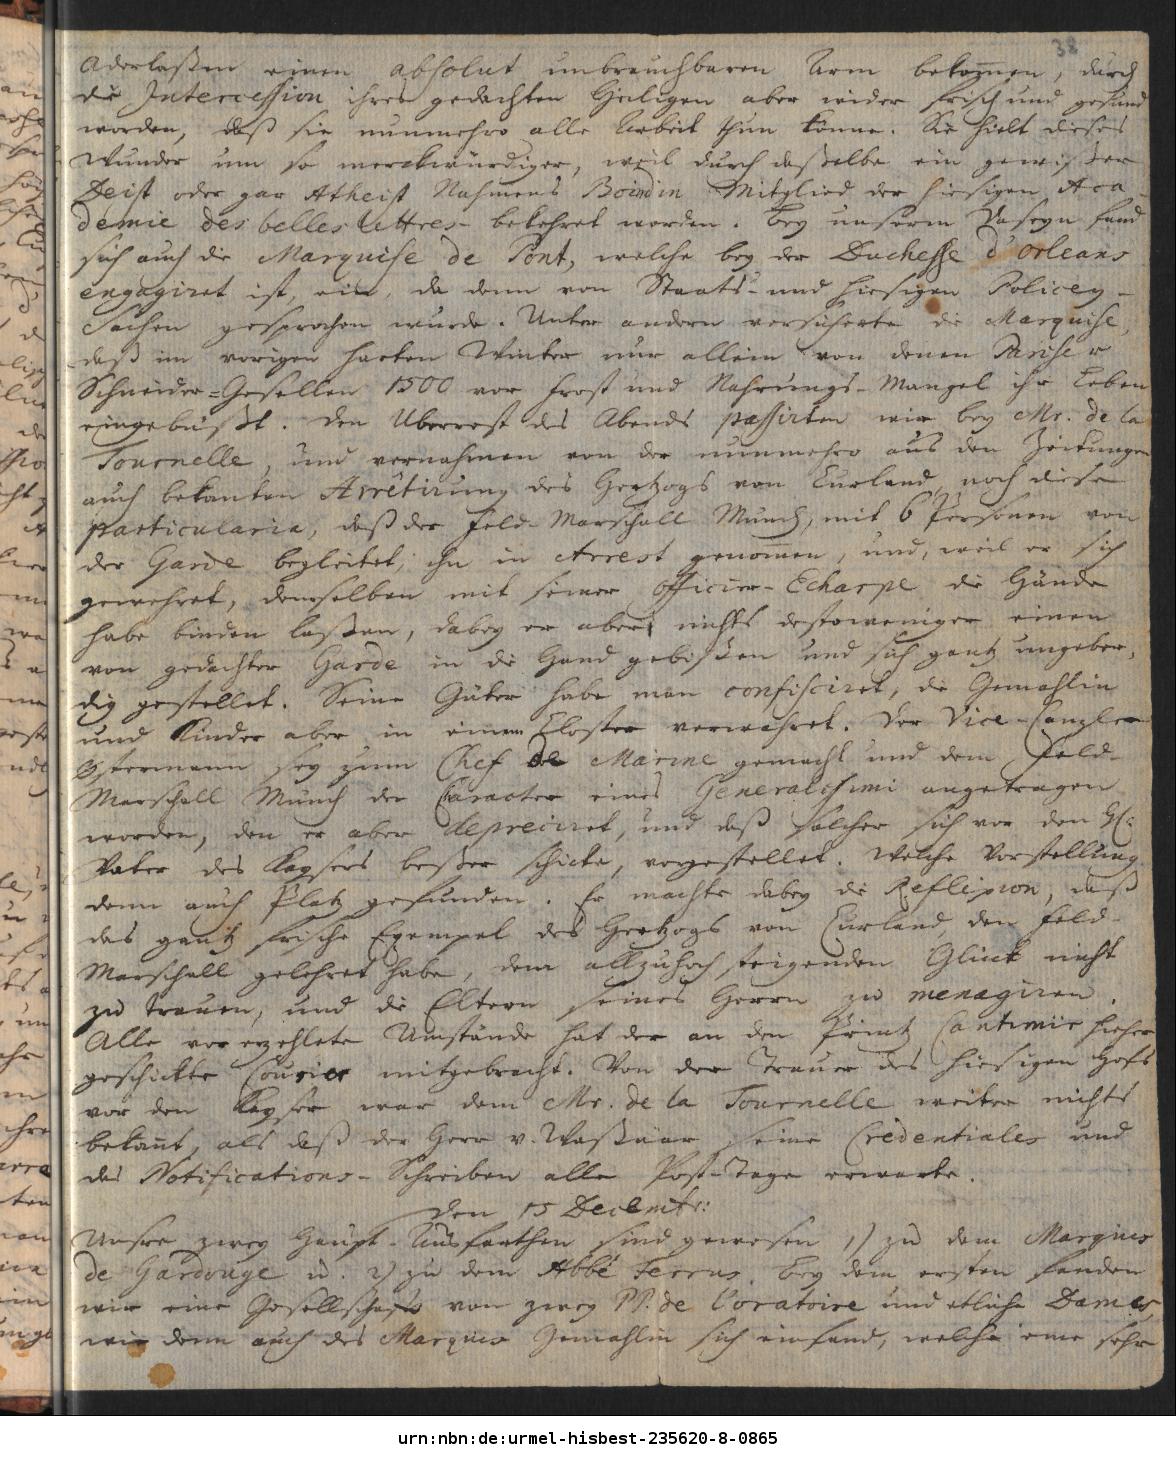 38
Aderlaßen einen absolut unbrauchbaren Arm bekom̅en, durch
die Intercession ihres gedachten Heiligen aber wider frisch und gesund
worden, daß sie nunmehro alle Arbeit thun könne. Sie hielt dieses
Wunder um so merckwürdiger, weil durch daßelbe ein gewißer
Deist oder gar Atheist Nahmens Boindin Mitglied der hiesigen Aca-
demie des belles lettres bekehret worden. Bey unserm Daseyn fand
sich auch die Marquise de Pont, welche bey der Duchesse d'Orleans
engagiret ist, ein, da denn von Staats- und hiesigen Policey-
Sachen gesprochen wurde. Unter andern versicherte die Marquise,
daß im vorigen harten Winter nur allein von denen Pariser
Schneider-Gesellen 1500 vor Frost und Nahrungs-Mangel ihr Leben
eingebüßt. Den Uberrest des Abends passirten wir bey Mr. de la
Tournelle, und vernahmen von der nunmehro aus den Zeitungen
auch bekanten Arrêtirung des Hertzogs von Curland noch diese
particularia, daß der Feld-Marschall Münch, mit 6 Personen von
der Garde begleitet, ihn in Arrest genom̅en, und, weil er sich
gewehret, demselben mit seiner Officier-Echarpe die Hände
habe binden laßen, dabey er aber nichts destoweniger einen
von gedachter Garde in die Hand gebißen und sich gantz ungeber-
dig gestellet. Seine Güter habe man confisciret, die Gemahlin
und Kinder aber in einem Closter verwahret. Der Vice-Canzler
Ostermann sey zum Chef de Marine gemacht und dem Feld-
Marschall Münch der Caracter eines Generalissimi angetragen
worden, den er aber depreciret, und daß solcher sich vor den H:
Vater des Kaysers beßer schicke, vorgestellet. Welche Vorstellung
denn auch Platz gefunden. Er machte dabey die Reflexion, daß
das gantz frische Exempel des Hertzogs von Curland, den Feld-
Marschall gelehret habe, dem allzuhoch steigenden Glück nicht
zu trauen, und die Eltern seines Herrn zu menagiren.
Alle vorerzehlete Umstände hat der an den Printz Cantimir hieher
geschickte Courier mitgebracht. Von der Trauer des hiesigen Hofs
vor den Kayser war dem Mr. de la Tournelle weiter nichts
bekan̅t, als daß der Herr v. Waßnaar seine Credentiales und
das Notifications-Schreiben alle Post-Tage erwarte.
den 15 Decembr:
Unsere zwey Haupt-Ausfarthen sind gewesen 1) zu dem Marquis
de Gardouge u. 2) zu dem Abbé Terrus. Bey dem ersten fanden
wir eine Gesellschaft von zwey PP. de l'oratoire und etliche Dames,
wie denn auch des Marquis Gemahlin sich einfand, welche eine sehr